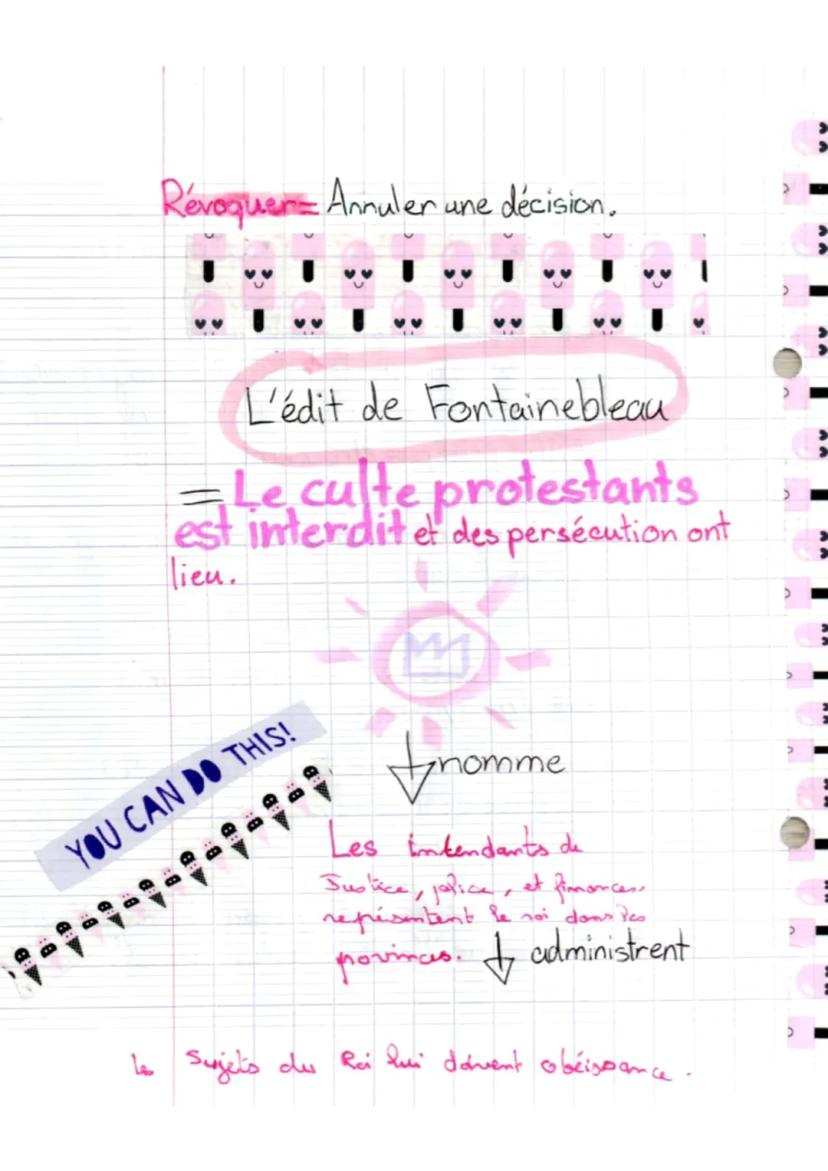 Révoquer= Annuler une décision.
L'édit de Fontainebleau
= Le culte protestants
est interdit et des persécution ont
lieu.
nomme
YOU CAN DO THIS!
Les intendants de
Justice, police, et finances,
représentent le roi dans les
provinces.
administrent
Le Sujets du Roi lui doivent obéissance.